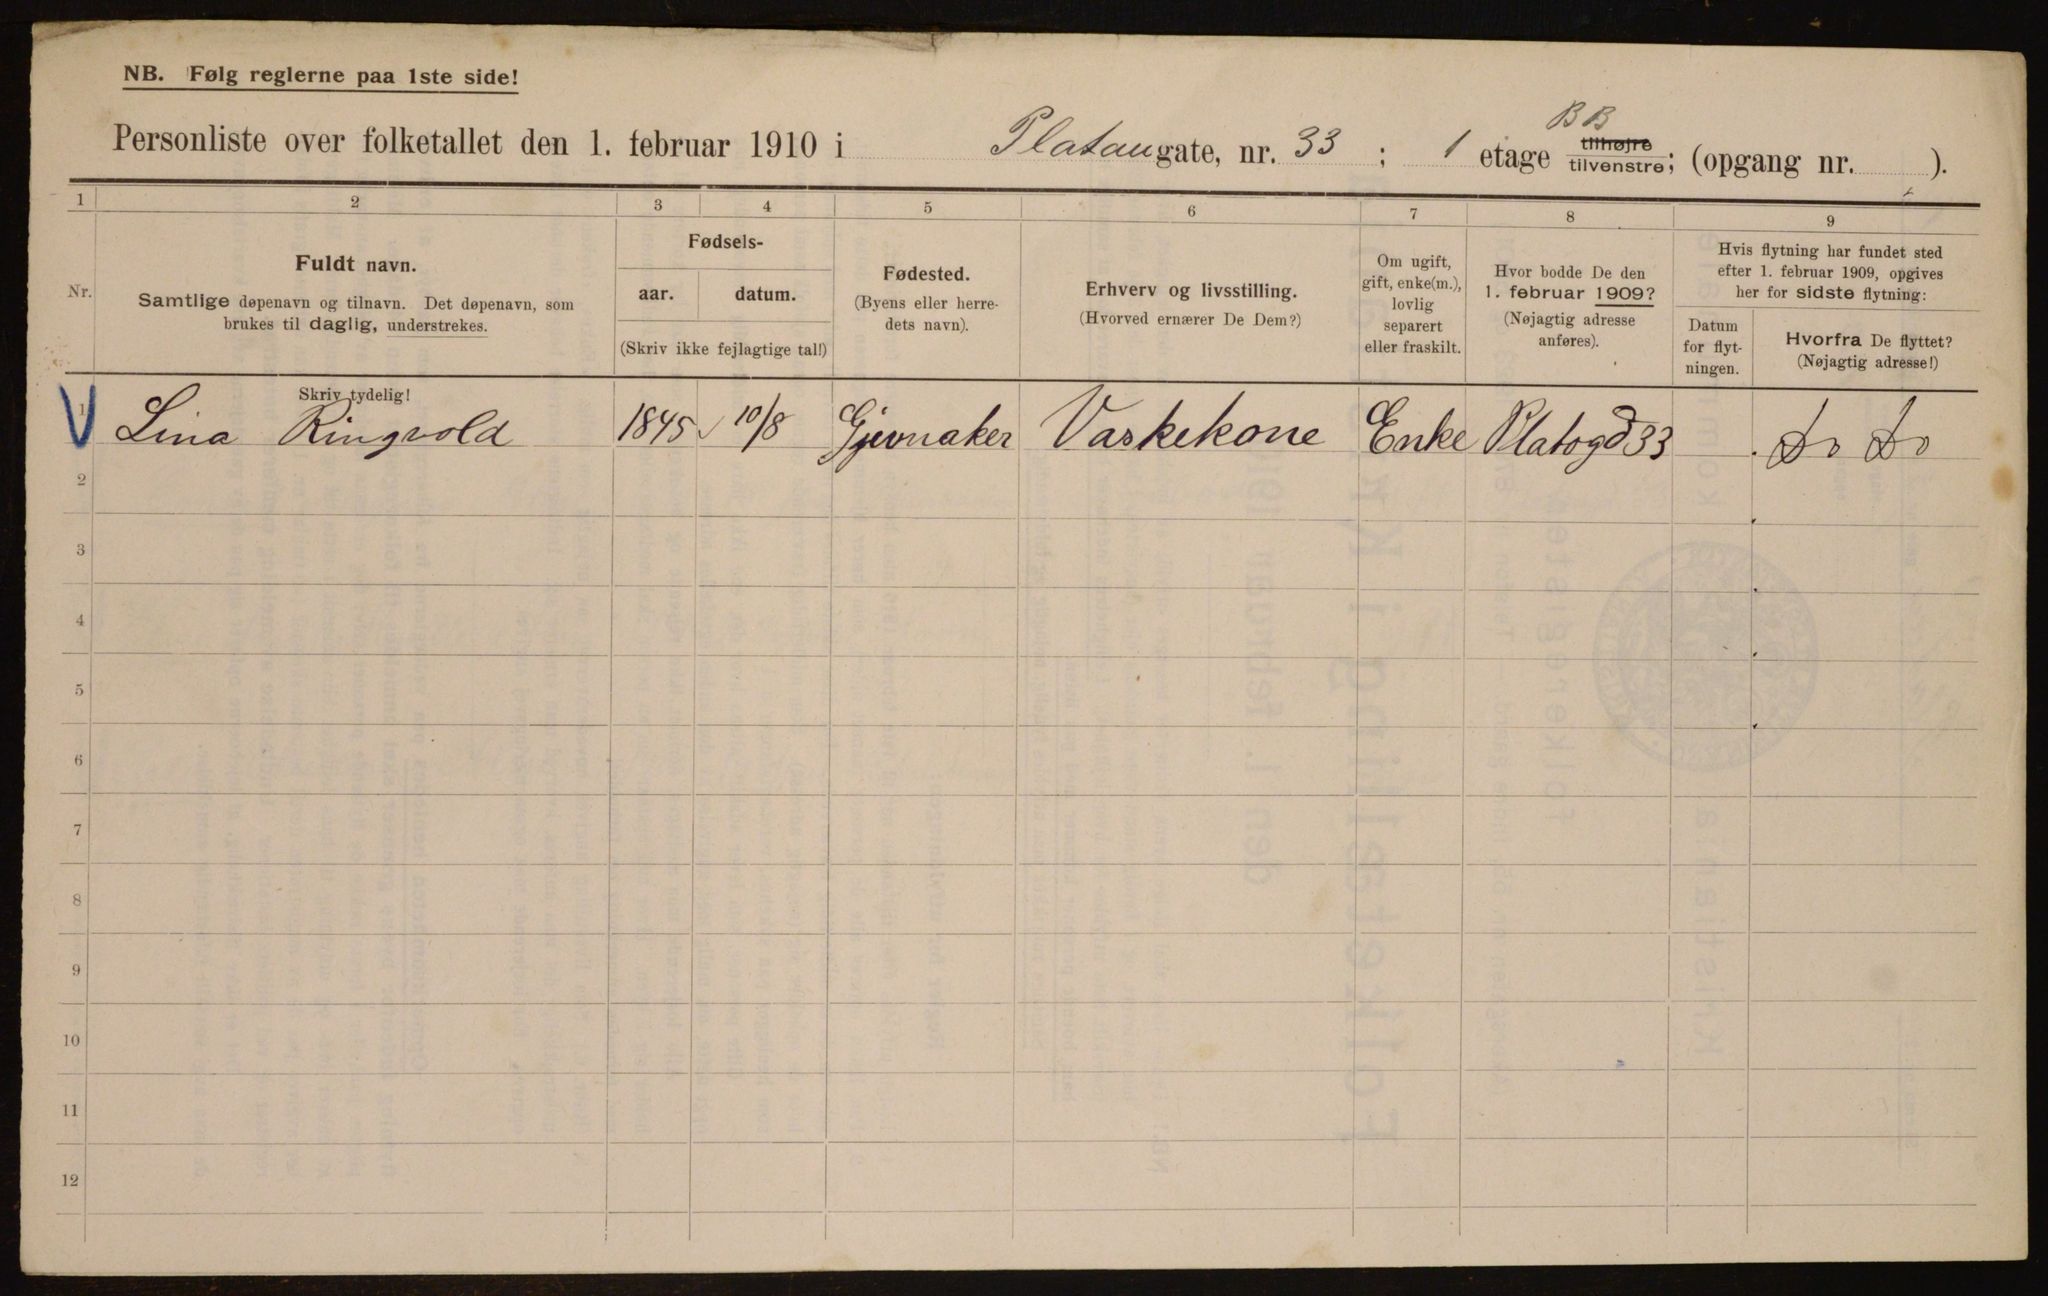 NB. Følg reglerne paa 1ste side!
BB
Personliste over folketallet den 1. februar 1910 i Platangate, nr. 33 ; 1 etage tilhøjre tilvenstre; (opgang nr. ).
1 2 3 4 5 6 7 8 9
Nr.
Fuldt navn.
Samtlige døpenavn og tilnavn. Det døpenavn, som
brukes til daglig, understrekes.
Fødsels-
aar. datum.
(Skriv ikke fejlagtige tal!)
Fødested.
(Byens eller herre-
dets navn).
Erhverv og livsstilling.
(Hvorved ernærer De Dem?)
Om ugift,
gift, enke(m.),
lovlig
separert
eller fraskilt.
Hvor bodde De den
1. februar 1909?
(Nøjagtig adresse
anføres).
Hvis flytning har fundet sted
efter 1. februar 1909, opgives
her for sidste flytning:
Datum
for flyt-
ningen.
Hvorfra De flyttet?
(Nøjagtig adresse!)
Skriv tydelig!
1 Lina Ringvold 1845 10/8 Gjevnaker Vaskekone Enke Platogd 33 Do Do
2
3
4
5
6
7
8
9
10
11
12